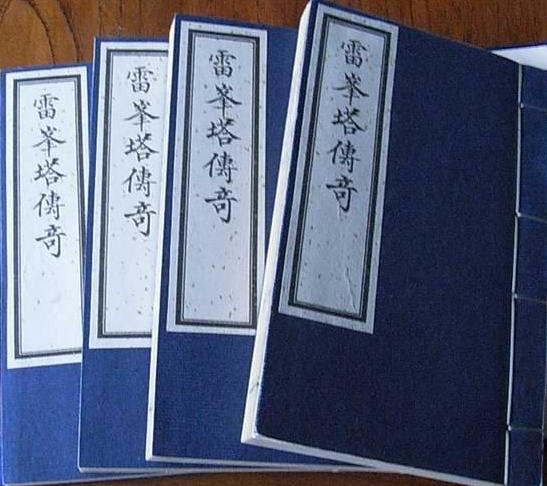 雷峯塔傳奇
雷峯塔傳奇
雷峯塔傳奇
雷峯塔傳奇